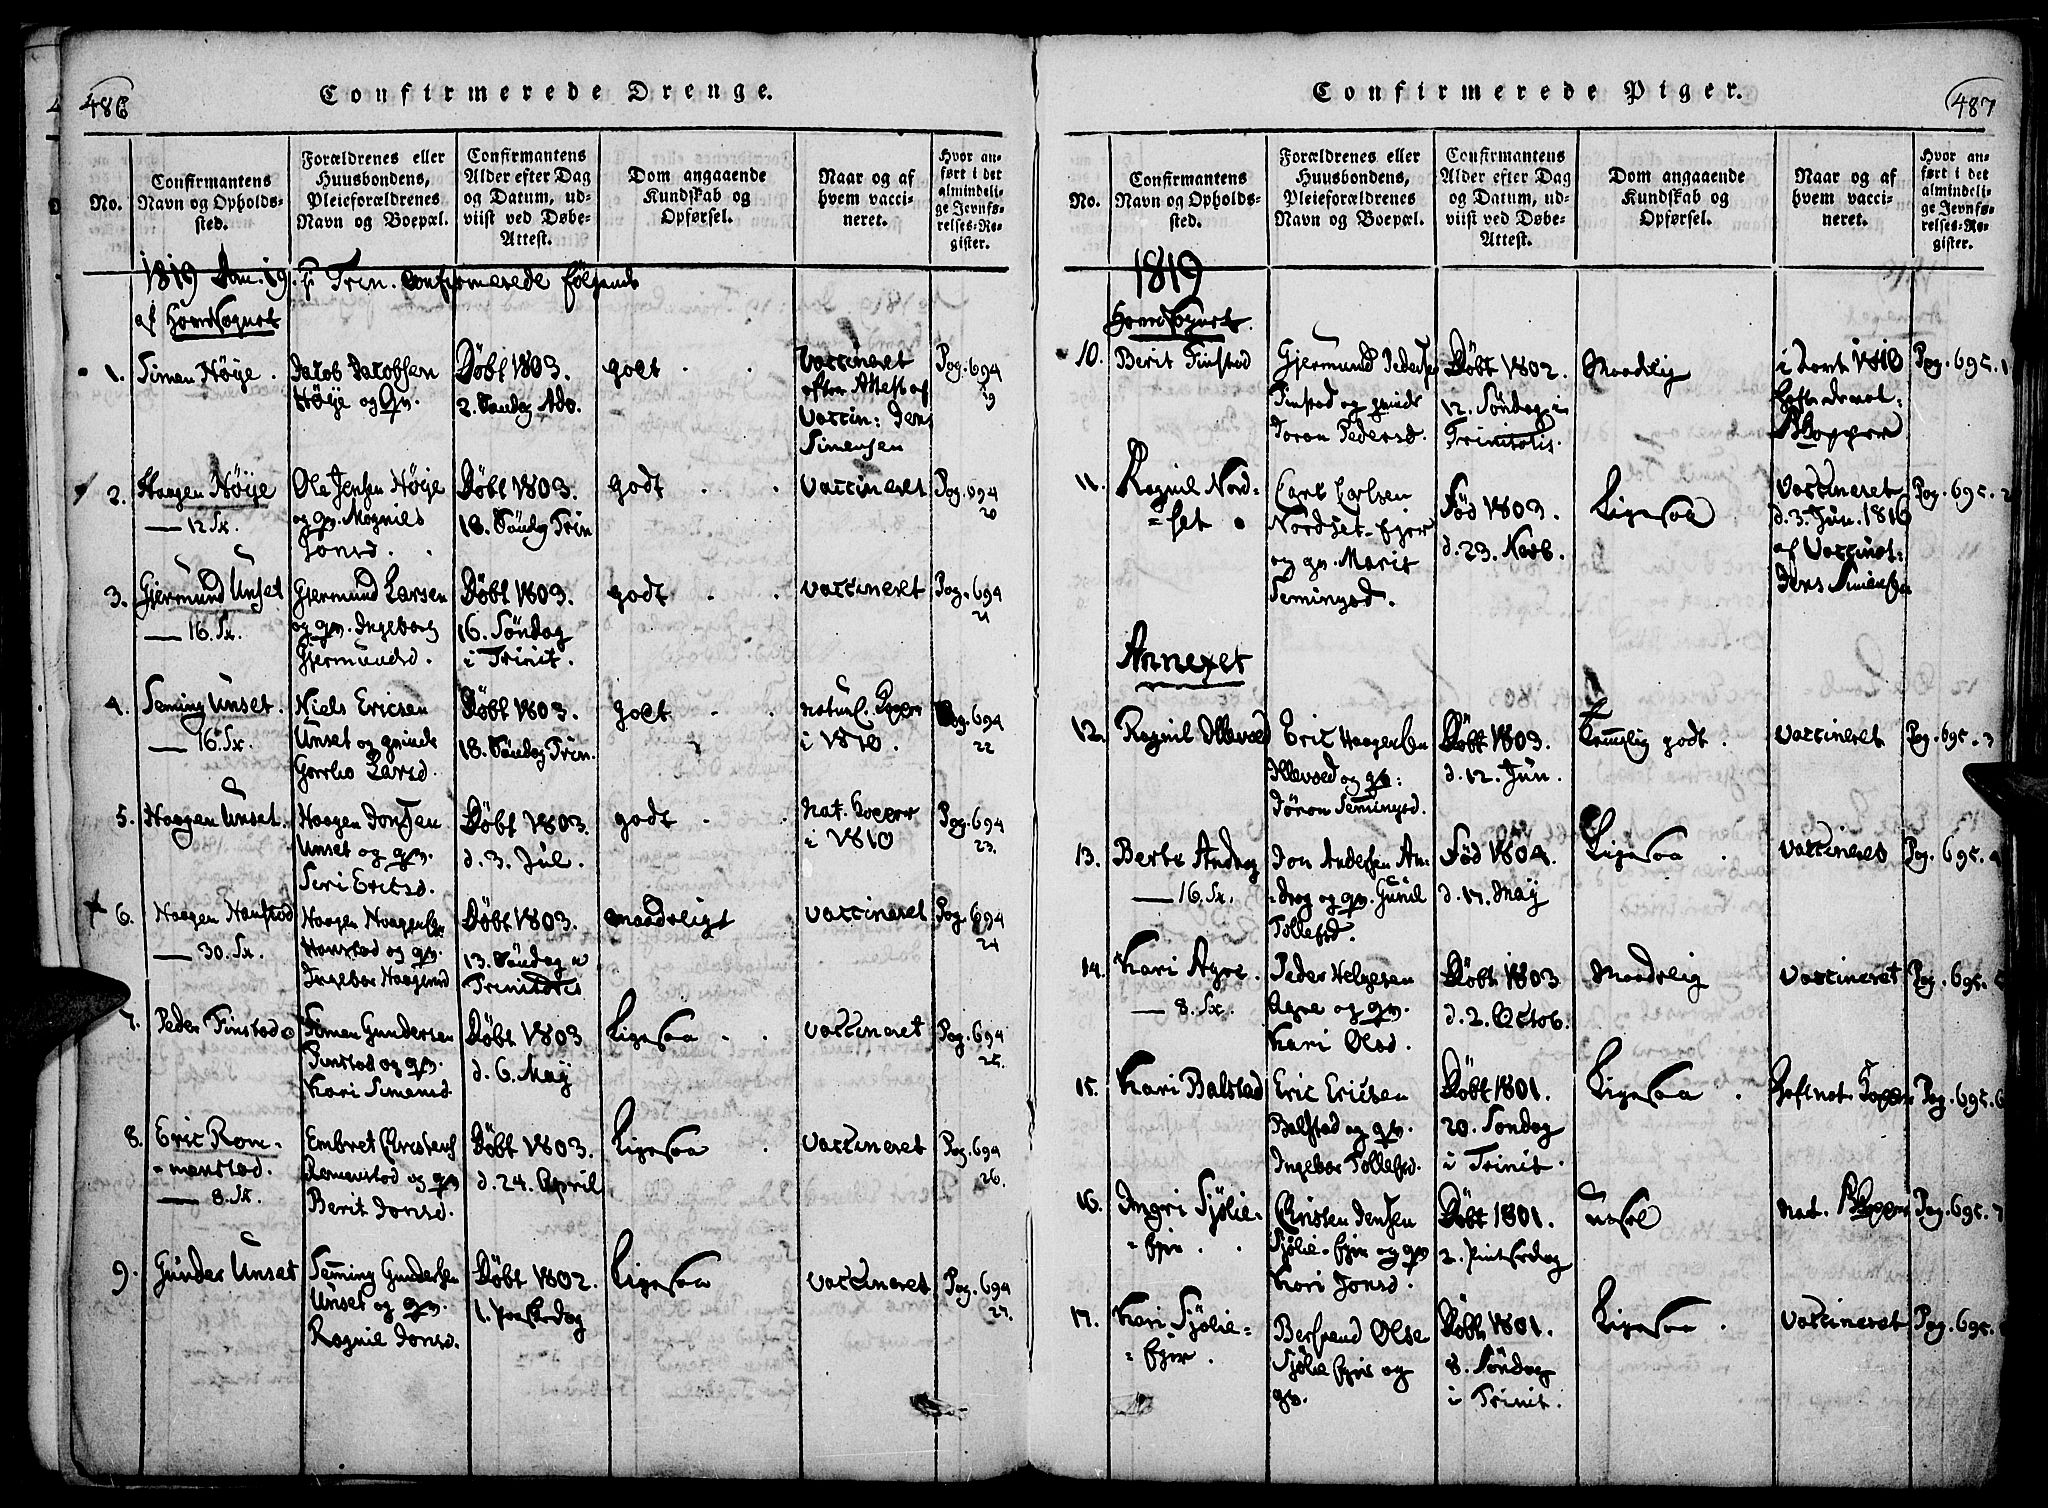 486
Confirmerede Drenge.
No.
Confirmantens
Navn og Opholds-
sted.
Forældrenes eller
Huusbondens,
Pleieforældrenes
Navn og Boepæl.
Confirmantens
Alder efter Dag
og Datum, ud-
viist ved Døbe-
Attest.
Dom angaaende
Kundskab og
Opførsel.
Naar og af
hvem vacci-
neret.
Hvor an-
ført i det
almindeli-
ge Jevnfø-
relses-Re-
gister.
1819 Dom. 19. p Trin. Confirmerede følgende
af Hovedsognet
1. Simen Höÿe.
Jacob Jacobsen
Höÿe og Qv.
Döbt 1803.
2. Söndag Adv.
godt
Vaccineret
efter Attest af
Vaccin: Jens
Simensen
Pag. 694
19
2. Haagen Höÿe
— 12 Sk.
Ole Jensen Höÿe
og qv. Magnild
Jonsd.
Döbt 1803.
18. Söndag Trin
godt
vaccineret
Pag. 694
20
3. Gjermund Unset
— 16. Sk.
Gjermund Larsen
og qv. Ingeborg
Gjermundsd.
Döbt 1803.
16. Söndag
i Trinit.
godt
vaccineret
Pag. 694
21
4. Seming Unset.
— 16. Sk.
Niels Ericsen
Unset og qvinde
Larsd.
Döbt 1803.
18. Söndag Trin.
godt
naturl. Kopper
i 1810.
Pag. 694
22
5. Haagen Unset.
Haagen Jonsen
Unset og qv.
Siri Ericsd.
Döbt 1803.
d. 3. Jul.
godt
Nat. Kopper
i 1810
Pag. 694
23.
6. Haagen Hanstad
— 30. Sk.
Haagen Haagensen
Hanstad og qv.
Ingebor Haagensd
Döbt 1803.
13. Söndag i
Trinitatis
maadeligt
vaccineret
Pag. 694
24
7. Peder Finstad
Simen Gundersen
Finstad og qv.
Kari Simensd
Döbt 1803
d. 6. Maÿ
Ligesaa
vaccineret
Pag. 694
25.
8. Eric Rom-
-menstad.
— 8. Sk.
Embret Christens
Romenstad og qv
Berit Jonsd.
Döbt 1803.
d. 24. April
Ligesaa
vaccineret
Pag. 694
26.
9. Gunder Unset
Seming Gundersen
Unset og qv.
Ragnil Jonsd.
Döbt 1802.
1. Paaskedag
Ligesaa
vaccineret
Pag. 694
27.
Confirmerede Piger.
487
No.
Confirmantens
Navn og Opholds-
sted.
Forældrenes eller
Huusbondens,
Pleieforældrenes
Navn og Boepæl.
Confirmantens
Alder efter Dag
og Datum, ud-
viist ved Døbe-
Attest.
Dom angaaende
Kundskab og
Opførsel.
Naar og af
hvem vacci-
neret.
Hvor an-
ført i det
almindeli-
ge Jevnfø-
relses-Re-
gister.
1819
Hovedsognet.
10. Berit Finstad
Gjermund Peders
Finstad og qvinde
Joran Pedersd.
Döbt 1802.
12. Söndag i
Trinitatis.
Maadelig
1810
havt de nat.
Kopper
Pag. 695. 1
11. Ragnil Nord-
-set
Carl Carlsen
Nordset-Ejer
og qv. Marit
Semingsd.
Föd 1803.
d. 23. Novb.
Ligesaa
vaccineret
d. 3. Jun. 1816
af Vaccinat:
Jens Simensen
Pag. 695. 2
Annexet
12. Ragnil Illevold
Eric Haagensen
Illevold og qv:
Jöran Semingsd.
Döbt 1803.
d. 12. Jun.
Temmelig godt.
vaccineret
Pag. 695. 3
13. Berte Andrag
— 16. Sk.
Jon Andersen An-
-drag og qv. Gunil
Tollefsd.
Föd 1804.
d. 17. Maÿ
Ligesaa
vaccineret
Pag. 695. 4
14. Kari Agre
— 8. Sk.
Peder Helgesen
Agre og qv.
Kari Olsd.
Döbt 1803
d. 2. Octob.
Maadelig
vaccineret
Pag. 695. 5
15. Kari Balstad
Eric Ericsen
Balstad og qv.
Ingebor Tollefsd.
Döbt 1801.
20. Söndag
i Trinit.
Ligesaa
Haft nat. Kopper
Pag. 695. 6
16. Ingri Sjölie-
-Ejer.
Christen Jensen
Sjölie-Ejer og qv
Kari Jonsd.
Döbt 1801.
2. Pintsedag
ussel
Nat. Kopper
Pag. 695. 7
17. Kari Sjölie-
-Ejer.
Bersvend Olse
Sjölie Ejer og
qv.
Döbt 1801.
8. Söndag
i Trinit.
Ligesaa
vaccineret
Pag. 695.